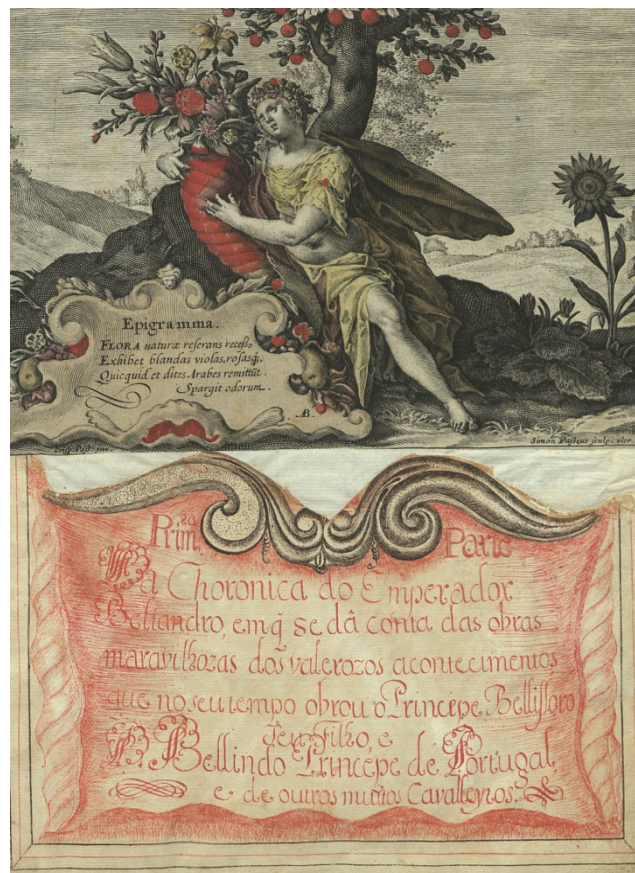 Epigramma.
FLORA naturæ referans receſſ9
Exhibet blandas violas, rosasq;
Quicquid et dites Arabes remittūt
Spargit odorum.
.B.
Crisp. Paß. inv.
Simon Paſſeus sculp.
Prim.ra Parte
Da Choronica do Emperador
Beliandro, emq̃ se dâ conta das obras
maravilhozas dos valerozos acontecimentos
que no seu tempo obrou o Principe Belliſloro
seu Filho, e
D. Bellindo Princepe de Portugal,
e de outros muitos Cavalleyros.